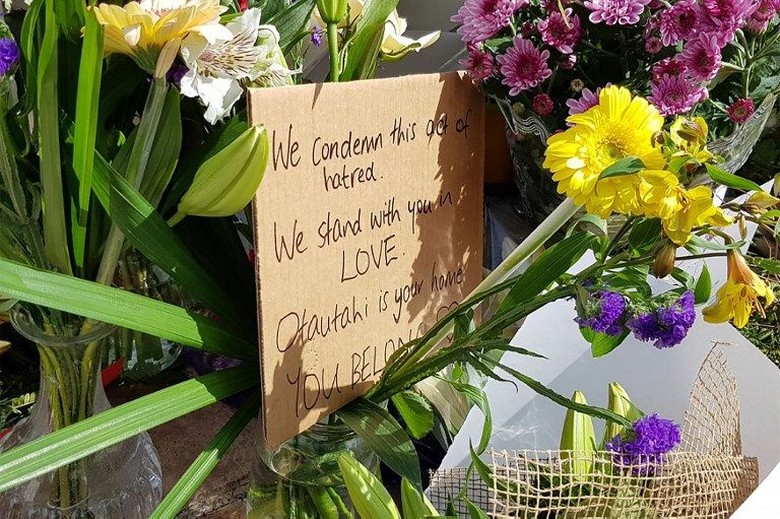 We Condemn this act of
hatred.
We stand with you in
LOVE.
Otautahi is your home
YOU BELONG